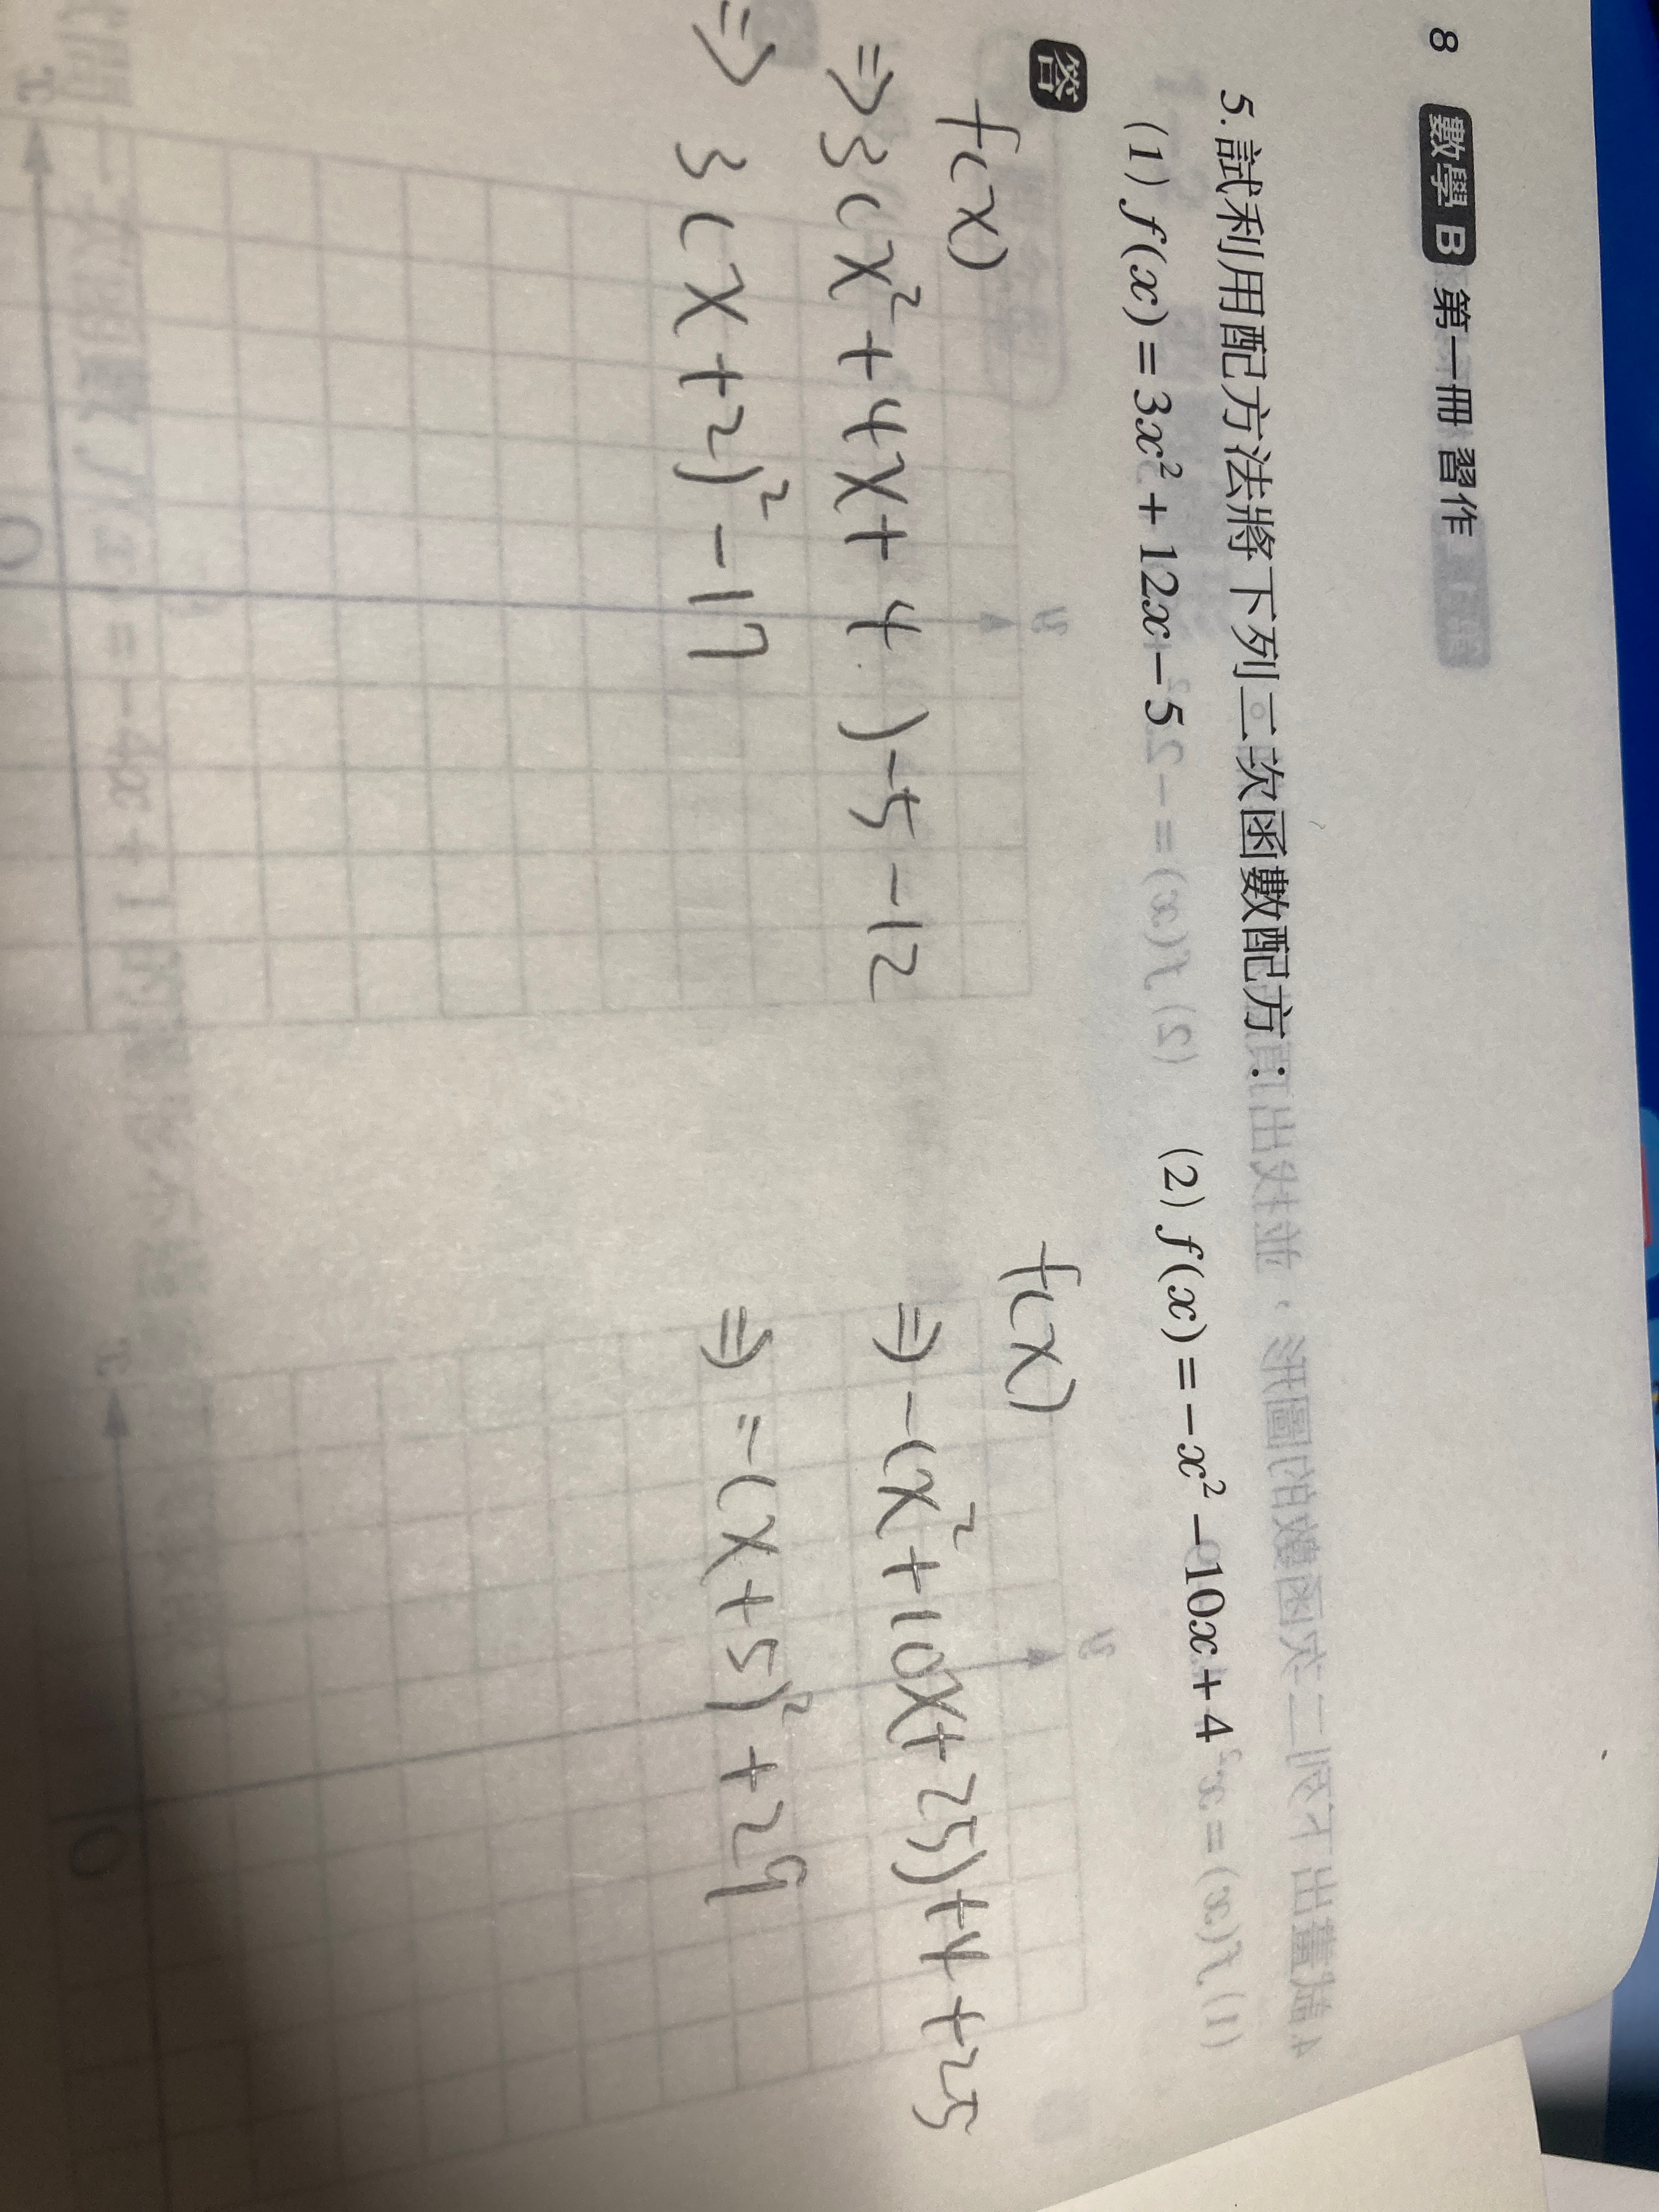 8 數學 B 第一冊 習作
5. 試利用配方法將下列二次函數配方：
(1) f(x) = 3x² + 12x − 5 (2) f(x) = −x² − 10x + 4
答
f(x)
⇒ 3(x² + 4x + 4) − 5 − 12
⇒ 3(x + 2)² − 17
f(x)
⇒ −(x² + 10x + 25) + 4 + 25
⇒ = −(x + 5)² + 29